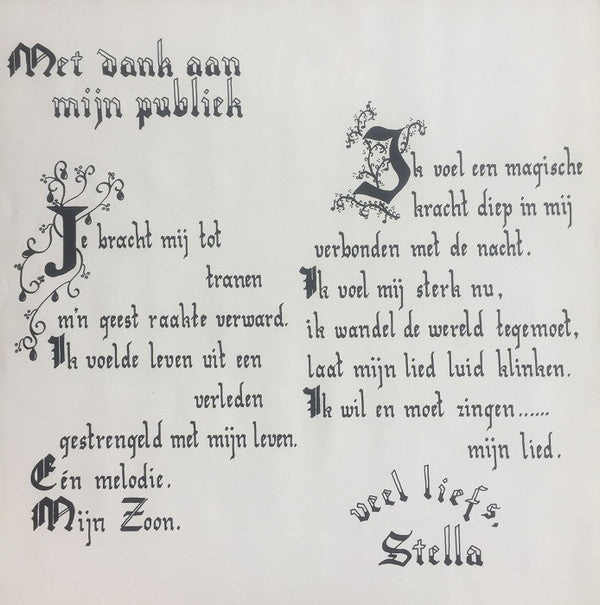 Met dank aan
mijn publiek
Je bracht mij tot
tranen
m'n geest raakte verward.
Ik voelde leven uit een
verleden
gestrengeld met mijn leven.
Eén melodie.
Mijn Zoon.
Ik voel een magische
kracht diep in mij
verbonden met de nacht.
Ik voel mij sterk nu,
ik wandel de wereld tegemoet,
laat mijn lied luid klinken.
Ik wil en moet zingen......
mijn lied.
veel liefs,
Stella